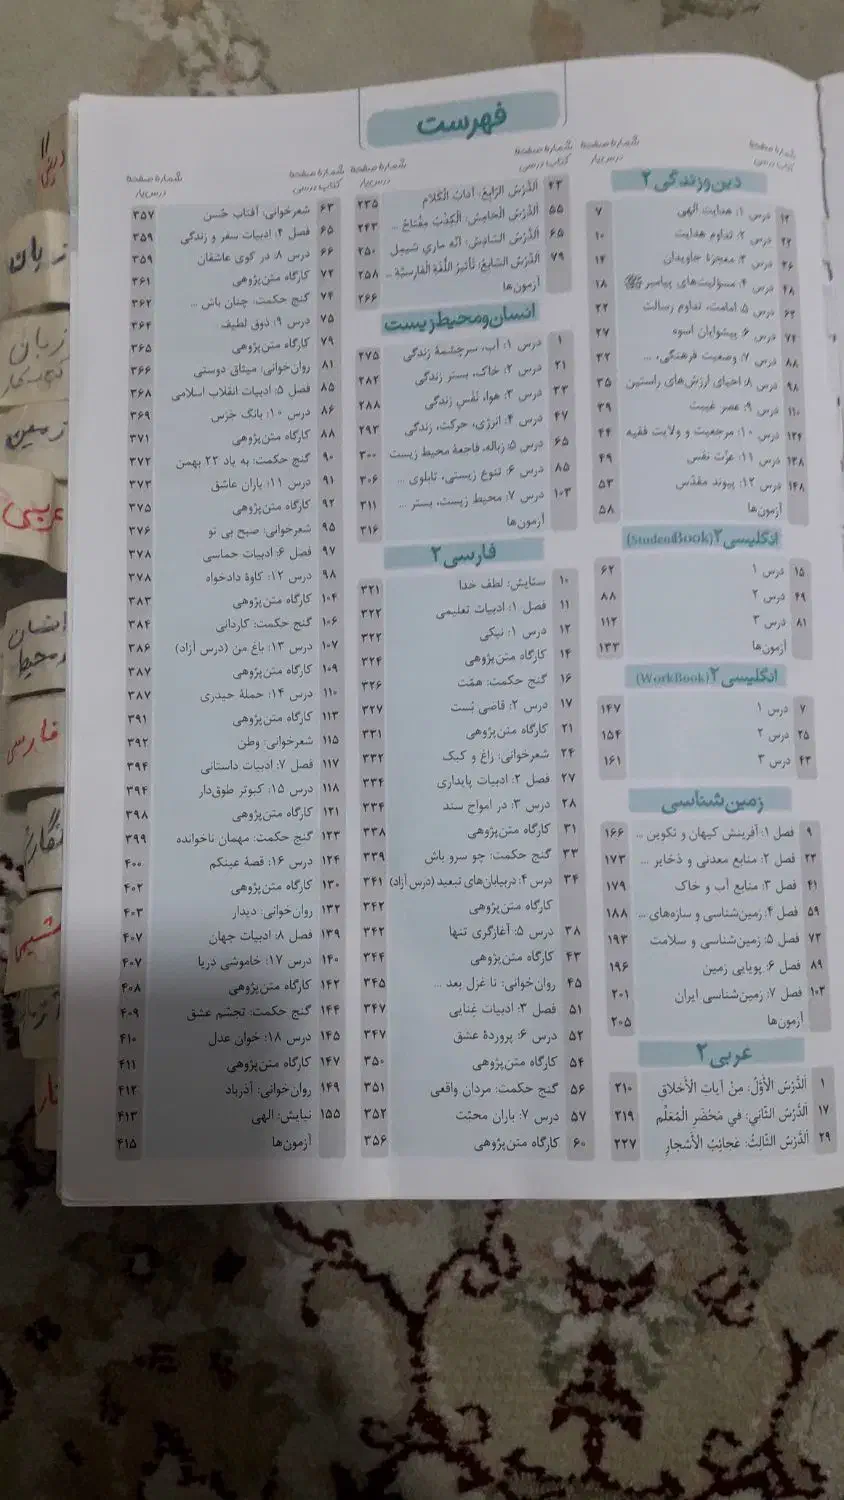 فهرست
شمارهٔ صفحه کتاب درسی
شمارهٔ صفحه درس‌یار
دین و زندگی ۲
۱۲ درس ۱: هدایت الهی ۷
۲۲ درس ۲: تداوم هدایت ۱۰
۳۶ درس ۳: معجزهٔ جاویدان ۱۴
۴۸ درس ۴: مسؤلیت‌های پیامبر ﷺ ۱۸
۶۲ درس ۵: امامت، تداوم رسالت ۲۲
۷۴ درس ۶: پیشوایان اسوه ۲۷
۸۸ درس ۷: وضعیت فرهنگی، ... ۳۲
۹۸ درس ۸: احیای ارزش‌های راستین ۳۵
۱۱۰ درس ۹: عصر غیبت ۳۹
۱۲۴ درس ۱۰: مرجعیت و ولایت فقیه ۴۴
۱۳۸ درس ۱۱: عزّت نفس ۴۹
۱۴۸ درس ۱۲: پیوند مقدّس ۵۳
آزمون‌ها ۵۸
انگلیسی ۲ (StudentBook)
۱۵ درس ۱ ۶۲
۴۹ درس ۲ ۸۸
۸۱ درس ۳ ۱۱۲
آزمون‌ها ۱۳۳
انگلیسی ۲ (WorkBook)
۷ درس ۱ ۱۴۷
۲۵ درس ۲ ۱۵۴
۴۳ درس ۳ ۱۶۱
زمین‌شناسی
۹ فصل ۱: آفرینش کیهان و تکوین ... ۱۶۶
۲۳ فصل ۲: منابع معدنی و ذخایر ... ۱۷۳
۴۱ فصل ۳: منابع آب و خاک ۱۷۹
۵۹ فصل ۴: زمین‌شناسی و سازه‌های ... ۱۸۸
۷۳ فصل ۵: زمین‌شناسی و سلامت ۱۹۳
۸۹ فصل ۶: پویایی زمین ۱۹۶
۱۰۳ فصل ۷: زمین‌شناسی ایران ۲۰۱
آزمون‌ها ۲۰۵
عربی ۲
۱ اَلدَّرْسُ الْأَوَّلُ: مِنْ آیاتِ الْأَخْلاقِ ۲۱۰
۱۷ اَلدَّرْسُ الثّاني: في مَحْضَرِ الْمُعَلِّمِ ۲۱۹
۲۹ اَلدَّرْسُ الثّالِثُ: عَجائِبُ الْأَشْجارِ ۲۲۷
شمارهٔ صفحه کتاب درسی
شمارهٔ صفحه درس‌یار
۴۳ اَلدَّرْسُ الرّابِعُ: آدابُ الْکَلامِ ۲۳۵
۵۵ اَلدَّرْسُ الْخامِسُ: اَلْکِذْبُ مِفْتاحٌ ... ۲۴۳
۶۵ اَلدَّرْسُ السّادِسُ: آنّه ماري شیمِل ۲۵۰
۷۹ اَلدَّرْسُ السّابِعُ: تَأثیرُ اللُّغَةِ الْفارِسيَّةِ ... ۲۵۸
آزمون‌ها ۲۶۶
انسان و محیط زیست
۱ درس ۱: آب، سرچشمهٔ زندگی ۲۷۵
۲۱ درس ۲: خاک، بستر زندگی ۲۸۲
۳۳ درس ۳: هوا، نَفَس زندگی ۲۸۸
۴۷ درس ۴: انرژی، حرکت، زندگی ۲۹۳
۶۵ درس ۵: زباله، فاجعهٔ محیط زیست ۳۰۰
۸۵ درس ۶: تنوع زیستی، تابلوی ... ۳۰۶
۱۰۳ درس ۷: محیط زیست، بستر ... ۳۱۱
آزمون‌ها ۳۱۶
فارسی ۲
۱۰ ستایش: لطف خدا ۳۲۱
۱۱ فصل ۱: ادبیات تعلیمی ۳۲۲
۱۲ درس ۱: نیکی ۳۲۲
۱۴ کارگاه متن‌پژوهی ۳۲۴
۱۶ گنج حکمت: همّت ۳۲۶
۱۷ درس ۲: قاضی بُست ۳۲۷
۲۱ کارگاه متن‌پژوهی ۳۳۱
۲۴ شعرخوانی: زاغ و کبک ۳۳۲
۲۷ فصل ۲: ادبیات پایداری ۳۳۴
۲۸ درس ۳: در امواج سند ۳۳۴
۳۱ کارگاه متن‌پژوهی ۳۳۸
۳۳ گنج حکمت: چو سرو باش ۳۳۹
۳۴ درس ۴: دربیابان‌های تبعید (درس آزاد) ۳۴۱
کارگاه متن‌پژوهی ۳۴۲
۳۸ درس ۵: آغازگری تنها ۳۴۲
۴۳ کارگاه متن‌پژوهی ۳۴۴
۴۵ روان‌خوانی: تا غزل بعد ... ۳۴۵
۵۱ فصل ۳: ادبیات غِنایی ۳۴۷
۵۲ درس ۶: پروردهٔ عشق ۳۴۷
۵۴ کارگاه متن‌پژوهی ۳۵۰
۵۶ گنج حکمت: مردان واقعی ۳۵۱
۵۷ درس ۷: باران محبّت ۳۵۲
۶۰ کارگاه متن‌پژوهی ۳۵۶
شمارهٔ صفحه کتاب درسی
شمارهٔ صفحه درس‌یار
۶۳ شعرخوانی: آفتاب حُسن ۳۵۷
۶۵ فصل ۴: ادبیات سفر و زندگی ۳۵۹
۶۶ درس ۸: در کوی عاشقان ۳۵۹
۷۲ کارگاه متن‌پژوهی ۳۶۱
۷۴ گنج حکمت: چنان باش ... ۳۶۲
۷۵ درس ۹: ذوق لطیف ۳۶۴
۷۹ کارگاه متن‌پژوهی ۳۶۵
۸۱ روان‌خوانی: میثاق دوستی ۳۶۶
۸۵ فصل ۵: ادبیات انقلاب اسلامی ۳۶۸
۸۶ درس ۱۰: بانگ جَرَس ۳۶۹
۸۸ کارگاه متن‌پژوهی ۳۷۱
۹۰ گنج حکمت: به یاد ۲۲ بهمن ۳۷۲
۹۱ درس ۱۱: یاران عاشق ۳۷۳
۹۲ کارگاه متن‌پژوهی ۳۷۵
۹۵ شعرخوانی: صبح بی تو ۳۷۶
۹۷ فصل ۶: ادبیات حماسی ۳۷۸
۹۸ درس ۱۲: کاوهٔ دادخواه ۳۷۸
۱۰۴ کارگاه متن‌پژوهی ۳۸۳
۱۰۶ گنج حکمت: کاردانی ۳۸۴
۱۰۷ درس ۱۳: باغ من (درس آزاد) ۳۸۶
۱۰۹ کارگاه متن‌پژوهی ۳۸۷
۱۱۰ درس ۱۴: حملهٔ حیدری ۳۸۷
۱۱۳ کارگاه متن‌پژوهی ۳۹۱
۱۱۵ شعرخوانی: وطن ۳۹۲
۱۱۷ فصل ۷: ادبیات داستانی ۳۹۴
۱۱۸ درس ۱۵: کبوتر طوق‌دار ۳۹۴
۱۲۱ کارگاه متن‌پژوهی ۳۹۸
۱۲۳ گنج حکمت: مهمان ناخوانده ۳۹۹
۱۲۴ درس ۱۶: قصهٔ عینکم ۴۰۰
۱۳۰ کارگاه متن‌پژوهی ۴۰۲
۱۳۲ روان‌خوانی: دیدار ۴۰۳
۱۳۹ فصل ۸: ادبیات جهان ۴۰۷
۱۴۰ درس ۱۷: خاموشی دریا ۴۰۷
۱۴۲ کارگاه متن‌پژوهی ۴۰۸
۱۴۴ گنج حکمت: تجسّم عشق ۴۰۹
۱۴۵ درس ۱۸: خوان عدل ۴۱۰
۱۴۷ کارگاه متن‌پژوهی ۴۱۱
۱۴۹ روان‌خوانی: آذرباد ۴۱۲
۱۵۵ نیایش: الهی ۴۱۳
آزمون‌ها ۴۱۵
زبان
زبان
زمین
عربی
انسان
محیط
فارسی
نگارش
شیمی